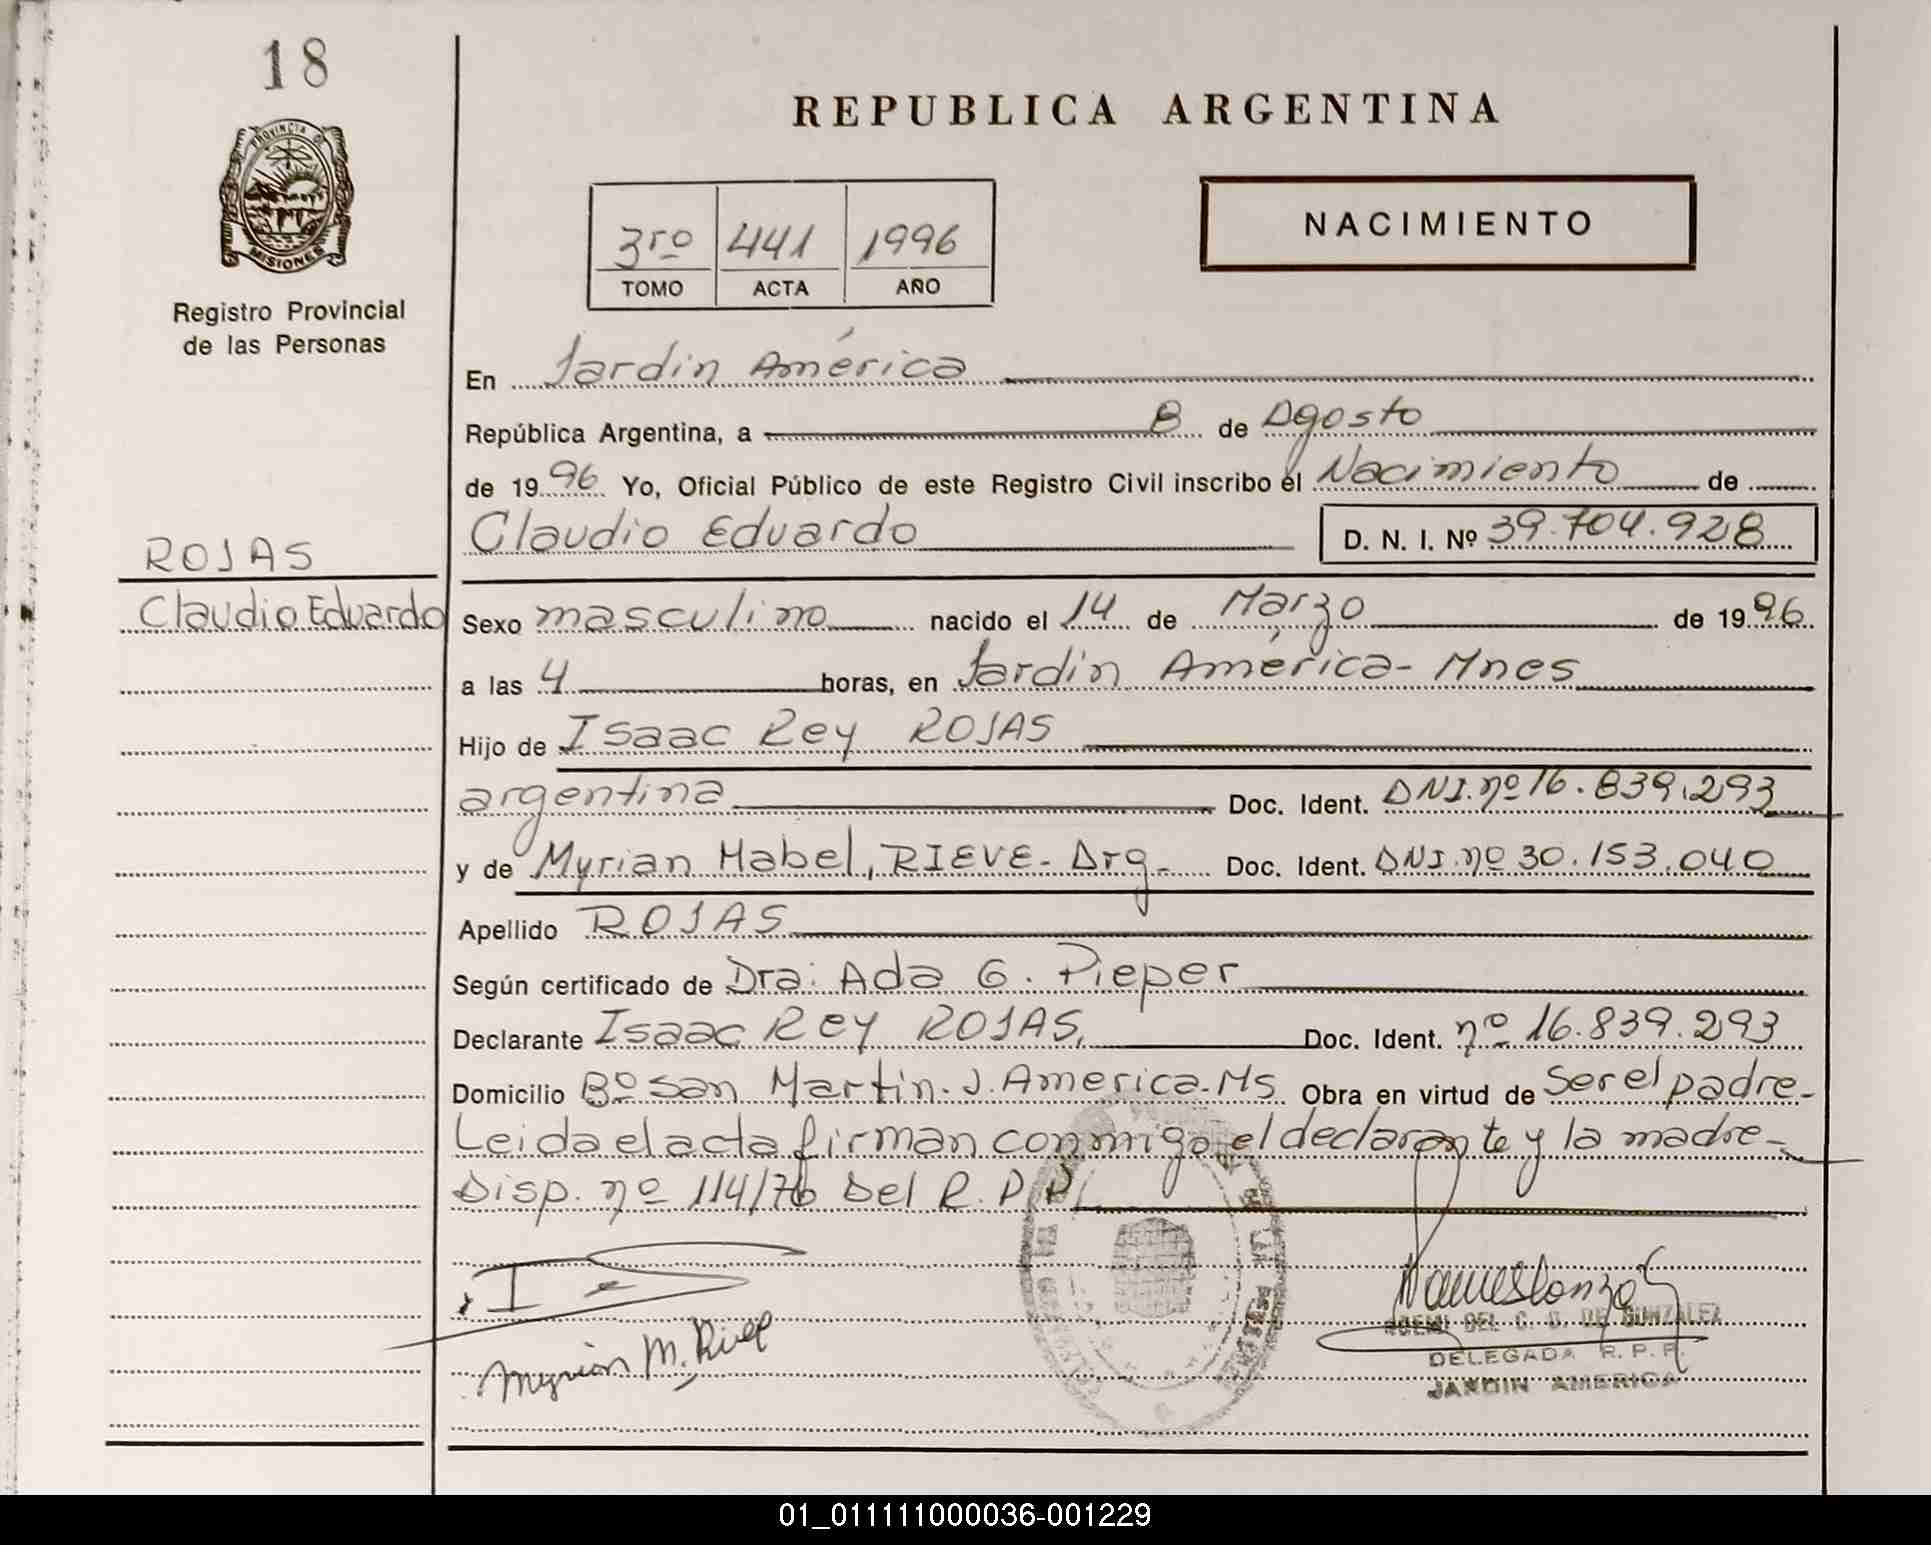 18
PROVINCIA DE
MISIONES
Registro Provincial
de las Personas
REPUBLICA ARGENTINA
3ro 441 1996
TOMO ACTA AÑO
NACIMIENTO
En Jardin América
República Argentina, a 8 de Agosto
de 1996 Yo, Oficial Público de este Registro Civil inscribo el Nacimiento de
Claudio Eduardo D. N. I. Nº 39.704.928
ROJAS
Claudio Eduardo
Sexo masculino nacido el 14 de Marzo de 1996
a las 4 horas, en Jardin América - Mnes
Hijo de Isaac Rey ROJAS
argentina Doc. Ident. DNI. nº 16.839.293
y de Myrian Mabel, RIEVE - Arg - Doc. Ident. DNI. nº 30.153.040
Apellido ROJAS
Según certificado de Dra: Ada G. Pieper
Declarante Isaac Rey ROJAS, Doc. Ident. nº 16.839.293
Domicilio Bº San Martin. J. America. Ms Obra en virtud de Ser el padre -
Leida el acta firman conmigo el declarante y la madre -
Disp. nº 114/76 Del R. P. P.
Myrian M.
DE GONZALEZ
DELEGADA R. P. P.
JARDIN AMERICA
01_011111000036-001229